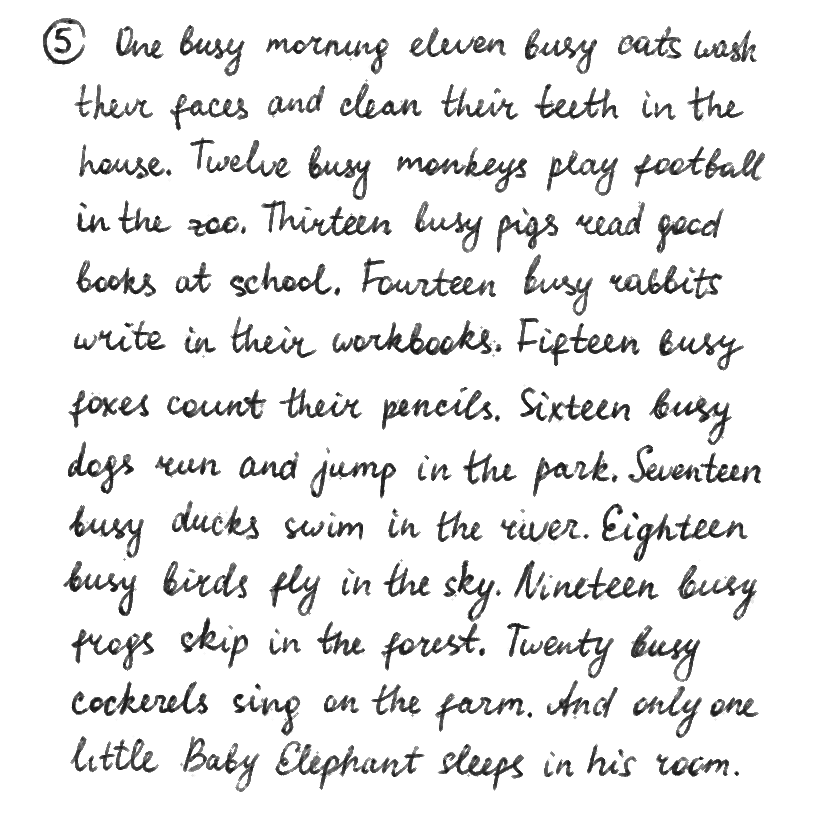 ⑤ One busy morning eleven busy cats wash
their faces and clean their teeth in the
house. Twelve busy monkeys play football
in the zoo. Thirteen busy pigs read good
books at school. Fourteen busy rabbits
write in their workbooks. Fifteen busy
foxes count their pencils. Sixteen busy
dogs run and jump in the park. Seventeen
busy ducks swim in the river. Eighteen
busy birds fly in the sky. Nineteen busy
frogs skip in the forest. Twenty busy
cockerels sing on the farm. And only one
little Baby Elephant sleeps in his room.